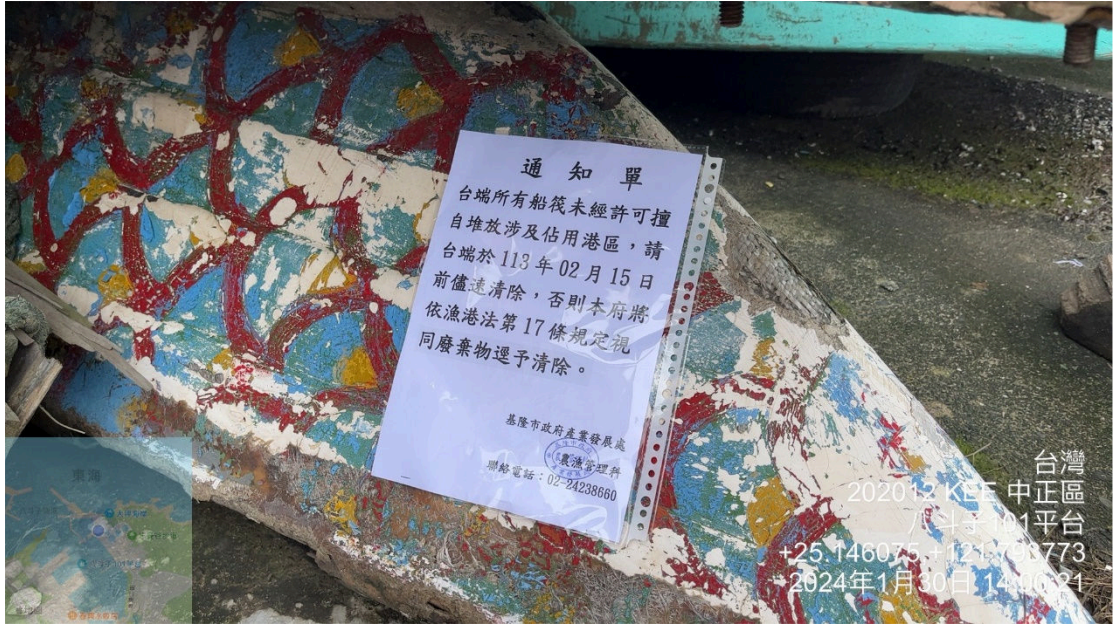 通知單
台端所有船筏未經許可擅
自堆放涉及佔用港區，請
台端於 113 年 02 月 15 日
前儘速清除，否則本府將
依漁港法第 17 條規定視
同廢棄物逕予清除。
基隆市政府產業發展處
農漁管理科
聯絡電話：02-24238660
台灣
202012 KEE 中正區
八斗子101平台
2024年1月30日 14:00:21
東海